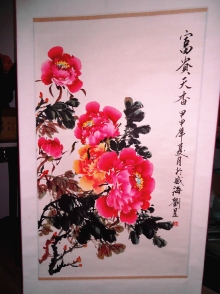 富贵天香
甲申年夏月於威海劉